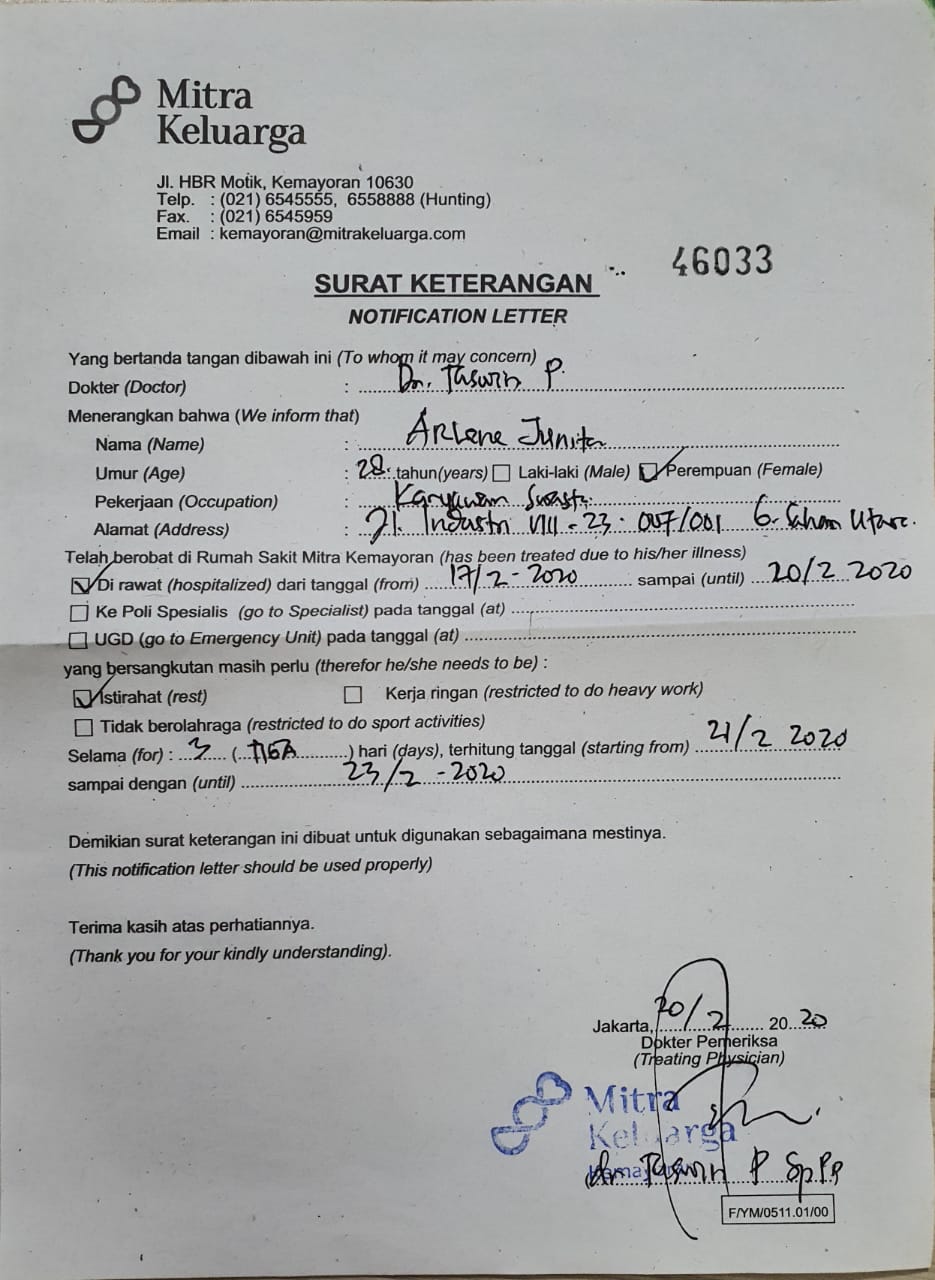 Mitra
Keluarga
Jl. HBR Motik, Kemayoran 10630
Telp. : (021) 6545555, 6558888 (Hunting)
Fax. : (021) 6545959
Email : kemayoran@mitrakeluarga.com
46033
SURAT KETERANGAN
NOTIFICATION LETTER
Yang bertanda tangan dibawah ini (To whom it may concern)
Dokter (Doctor) : Dr. Taswin P.
Menerangkan bahwa (We inform that)
Nama (Name) : Arlene Junita
Umur (Age) : 28 tahun(years) Laki-laki (Male) Perempuan (Female)
Pekerjaan (Occupation) : Karyawan Swasta
Alamat (Address) : Jl. Industri VIII - 23 : 007/001 G. Sahari Utara.
Telah berobat di Rumah Sakit Mitra Kemayoran (has been treated due to his/her illness)
Di rawat (hospitalized) dari tanggal (from) 17/2 - 2020 sampai (until) 20/2 2020
Ke Poli Spesialis (go to Specialist) pada tanggal (at)
UGD (go to Emergency Unit) pada tanggal (at)
yang bersangkutan masih perlu (therefor he/she needs to be) :
Istirahat (rest) Kerja ringan (restricted to do heavy work)
Tidak berolahraga (restricted to do sport activities)
Selama (for) : 3 (TIGA) hari (days), terhitung tanggal (starting from) 21/2 2020
sampai dengan (until) 23/2 - 2020
Demikian surat keterangan ini dibuat untuk digunakan sebagaimana mestinya.
(This notification letter should be used properly)
Terima kasih atas perhatiannya.
(Thank you for your kindly understanding).
Jakarta, 20/2 2020
Dokter Pemeriksa
(Treating Physician)
Mitra
Keluarga
dr Taswin P SpPD
F/YM/0511.01/00